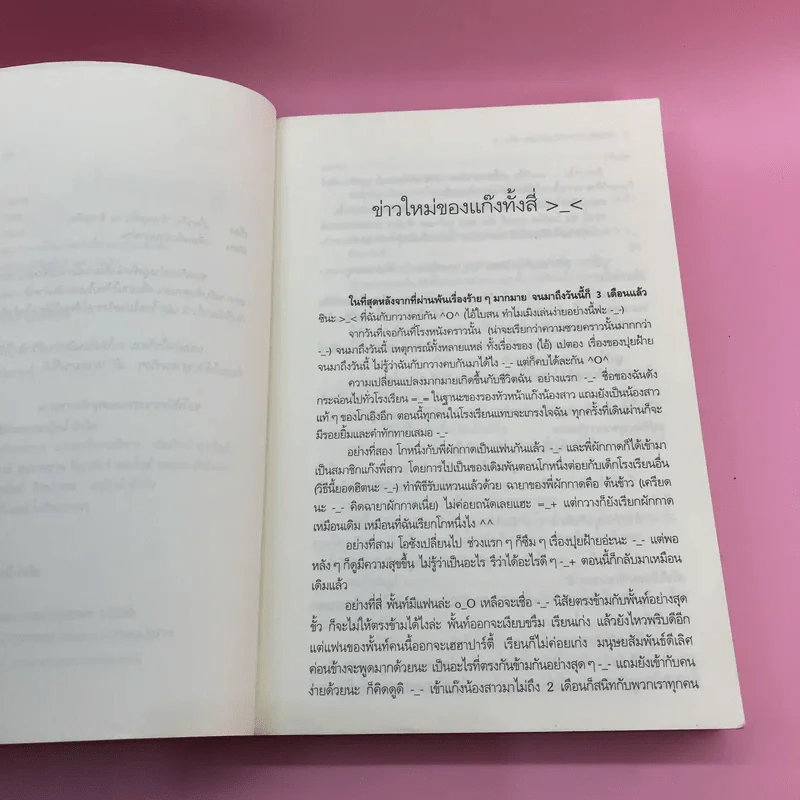 ข่าวใหม่ของแก๊งทั้งสี่ >_<
ในที่สุดหลังจากที่ผ่านพ้นเรื่องร้ายๆ มากมาย จนมาถึงวันนี้ก็ 3 เดือนแล้ว
ซินะ >_< ที่ฉันกับกวางคบกัน ^O^ (ไอ้ใบสน ทำไมเมิงเล่นง่ายอย่างนี้ฟะ -_-)
จากวันที่เจอกันที่โรงหนังคราวนั้น (น่าจะเรียกว่าความซวยคราวนั้นมากกว่า
-_-) จนมาถึงวันนี้ เหตุการณ์ทั้งหลายแหล่ ทั้งเรื่องของ (ไอ้) เปตอง เรื่องของปุยฝ้าย
จนมาถึงวันนี้ ไม่รู้ว่าฉันกับกวางคบกันมาได้ไง -_- แต่ก็คบได้ละกัน ^O^
ความเปลี่ยนแปลงมากมายเกิดขึ้นกับชีวิตฉัน อย่างแรก -_- ชื่อของฉันดัง
กระฉ่อนไปทั่วโรงเรียน =_= ในฐานะของรองหัวหน้าแก๊งน้องสาว แถมยังเป็นน้องสาว
แท้ๆ ของโกเอิงอีก ตอนนี้ทุกคนในโรงเรียนแทบจะเกรงใจฉัน ทุกครั้งที่เดินผ่านก็จะ
มีรอยยิ้มและคำทักทายเสมอ -_-
อย่างที่สอง โกหนึ่งกับพี่ผักกาดเป็นแฟนกันแล้ว -_- และพี่ผักกาดก็ได้เข้ามา
เป็นสมาชิกแก๊งพี่สาว โดยการไปเป็นของเดิมพันตอนโกหนึ่งต่อยกับเด็กโรงเรียนอื่น
(วิธีนี้ยอดฮิตนะ -_-) ทำพิธีรับแหวนแล้วด้วย ฉายาของพี่ผักกาดคือ ต้นข้าว (เครียด
นะ -_- คิดฉายาผักกาดเนี่ย) ไม่ค่อยถนัดเลยแฮะ =_+ แต่กวางก็ยังเรียกผักกาด
เหมือนเดิม เหมือนที่ฉันเรียกโกหนึ่งไง ^^
อย่างที่สาม โอซังเปลี่ยนไป ช่วงแรกๆ ก็ซึมๆ เรื่องปุยฝ้ายอ่ะนะ -_- แต่พอ
หลังๆ ก็ดูมีความสุขขึ้น ไม่รู้ว่าเป็นอะไร รึว่าได้อะไรดีๆ -_+ ตอนนี้ก็กลับมาเหมือน
เดิมแล้ว
อย่างที่สี่ พั้นท์มีแฟนล่ะ o_O เหลือจะเชื่อ -_- นิสัยตรงข้ามกับพั้นท์อย่างสุด
ขั้ว ก็จะไม่ให้ตรงข้ามได้ไงล่ะ พั้นท์ออกจะเงียบขรึม เรียนเก่ง แล้วยังไหวพริบดีอีก
แต่แฟนของพั้นท์คนนี้ออกจะเฮฮาปาร์ตี้ เรียนก็ไม่ค่อยเก่ง มนุษยสัมพันธ์ดีเลิศ
ค่อนข้างจะพูดมากด้วยนะ เป็นอะไรที่ตรงกันข้ามกันอย่างสุดๆ -_- แถมยังเข้ากับคน
ง่ายด้วยนะ ก็คิดดูดิ -_- เข้าแก๊งน้องสาวมาไม่ถึง 2 เดือนก็สนิทกับพวกเราทุกคน